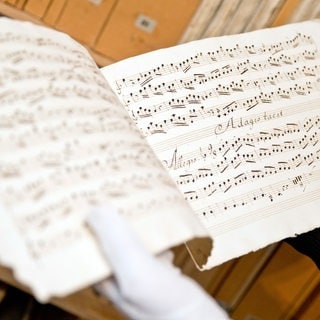 Adagio tacet
Allegro